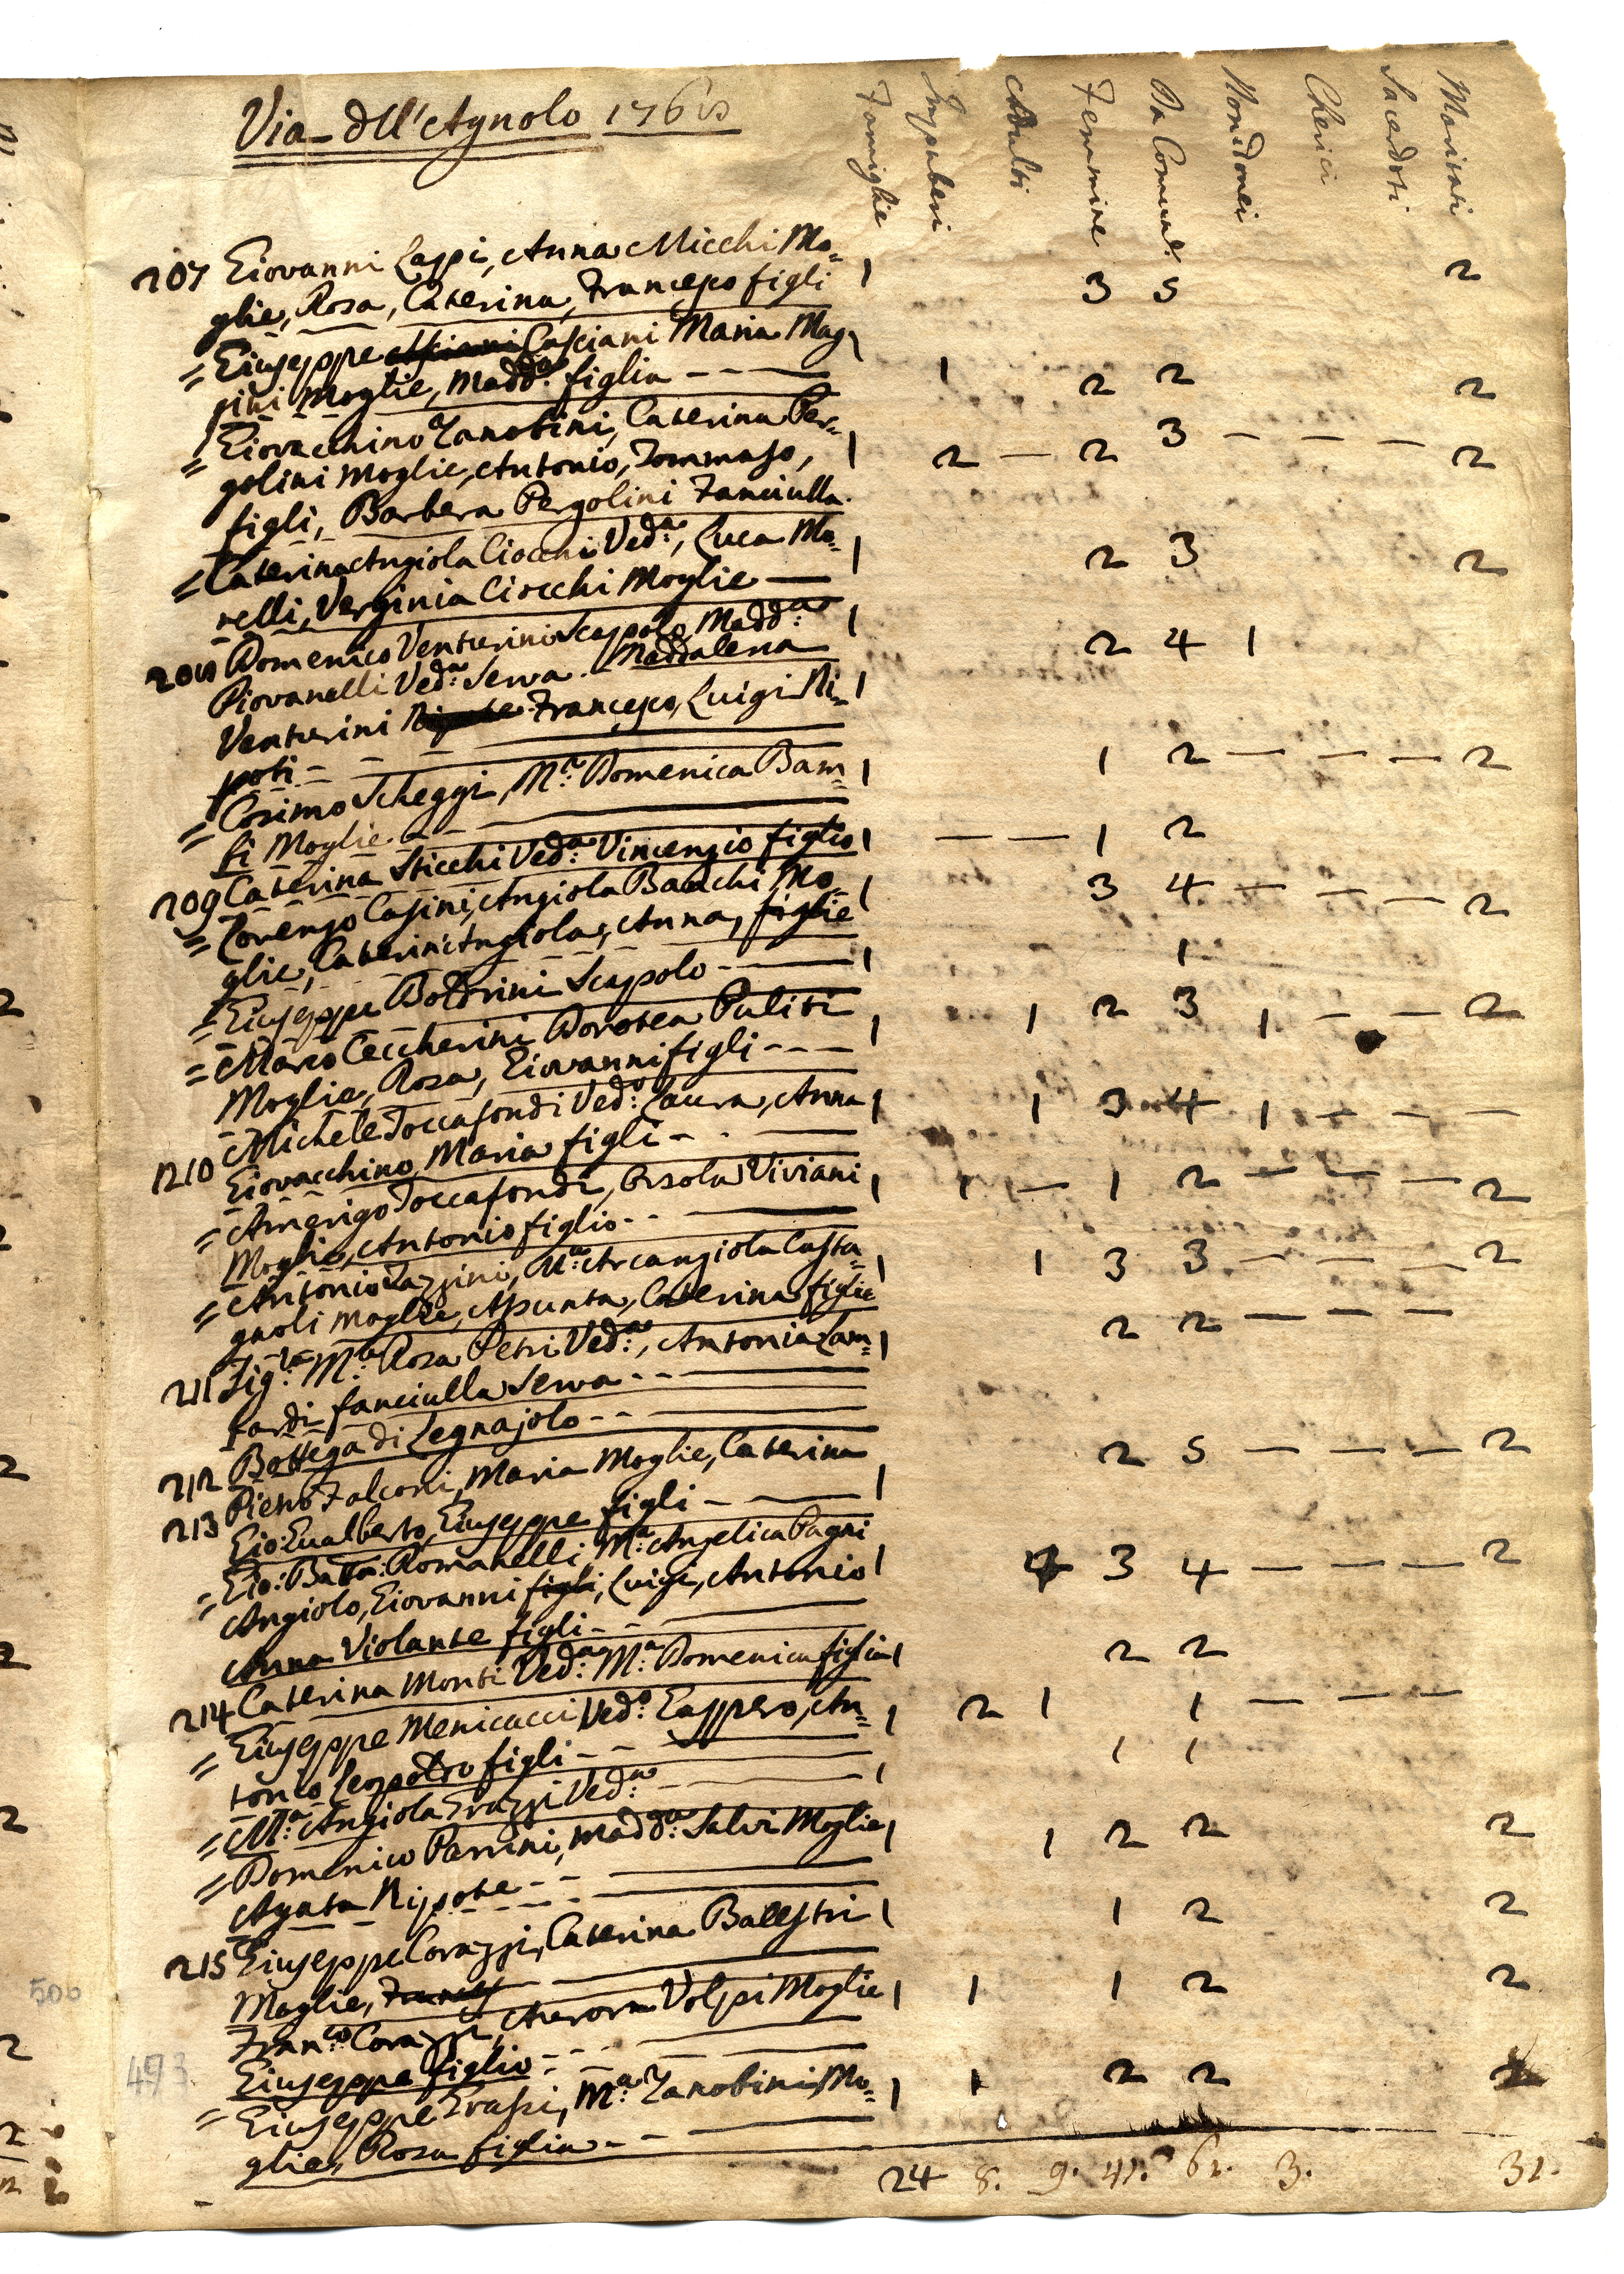 Via dell'Agnolo 1768
Famiglie Impuberi Adulti Femmine Da Comun.e Non Idonei Cherici Sacerdoti Maritati
207 Giovanni Lappi, Anna Micchi Mo= 1 3 5 2
glie, Rosa, Caterina, Francesco figli
= Giuseppe Casciani Maria Mag 1 1 2 2 2
gini Moglie, Madd.a figlia
= Giovacchino Zanobini, Caterina Per=
golini Moglie, Antonio, Tommaso, 1 2 — 2 3 — — — 2
figli, Barbera Pergolini Fanciulla
= Caterina Angiola Ciocchi Ved.a, Luca Mo= 1 2 3 2
relli, Verginia Ciocchi Moglie
208 Domenico Venturini Scapolo, Madd.a 1 2 4 1
Piovanelli Ved.a Serva. Maddalena
Venturini Nipote Francesco, Luigi Ni= 1
poti
= Cosimo Scheggi, M.a Domenica Bam= 1 1 2 — — — 2
fi Moglie
209 Caterina Sticchi Ved.a Vincenzio figlio 1 — — 1 2
= Lorenzo Casini, Angiola Bacchi Mo= 1 3 4 — — — 2
glie, Caterin'Angiola, Anna, figlie
= Giuseppe Boldrini Scapolo 1 1
= Marco Ceccherini Dorotea Puliti 1 1 2 3 1 — — 2
Moglie, Rosa, Giovanni figli
210 Michele Toccafondi Ved.o Laura, Anna 1 1 3 4 1 — — —
Giovacchino, Maria figli
= Amerigo Toccafondi, Orsola Viviani 1 1 — 1 2 — — — 2
Moglie, Antonio figlio
= Antonio Tazzini, M.a Arcangiola Casta= 1 1 3 3 — — — 2
gnoli Moglie, Assunta, Caterina figlie
211 Sig.ra M.a Rosa Petri Ved.a, Antonia Lam= 1 2 2 — — —
fardi fanciulla Serva
212 Bottega di Legnajolo
213 Piero Falconi, Maria Moglie, Caterina 1 2 5 — — — 2
Gio: Gualberto, Giuseppe figli
= Gio: Batta: Romanelli M.a Angelica Pagni
Angiolo, Giovanni figli, Luigi, Antonio 1 3 4 — — — 2
Anna Violante figli
214 Caterina Monti Ved.a M.a Domenica figlia 1 2 2
= Giuseppe Menicucci Ved.o Gasppero, An= 1 2 1 1 — — —
tonio Leopoldo figli
= M.a Angiola Grazzi Ved.a 1 1 1
= Domenico Parrini, Madd.a Salvi Moglie 1 1 2 2 2
Agata Nipote
215 Giuseppe Corazzi, Caterina Balestri 1 1 2 2
Moglie,
Fran.co Corazzi, Aurora Volpi Moglie 1 1 1 2 2
Giuseppe figlio
= Giuseppe Grassi, M.a Zanobini Mo= 1 1 2 2 2
glie, Rosa figlia
24 8. 9. 41. 61. 3. 31.
500
493